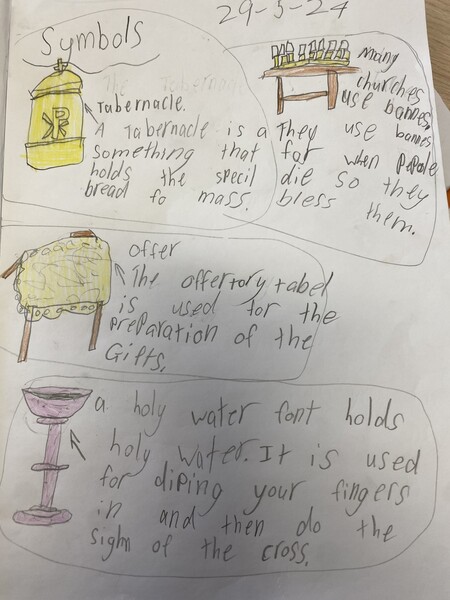 29-5-24
Symbols
The Tabernac
Tabernacle.
A Tabernacle is a
something that
holds the specil
bread fo mass.
many
churches
use bannes,
They use bannes
for when pepole
die so they
bless them.
offer
The offertory tabel
is used for the
preparation of the
Gifts,
a holy water font holds
holy water. It is used
for diping your fingers
in and then do the
sighn of the cross.